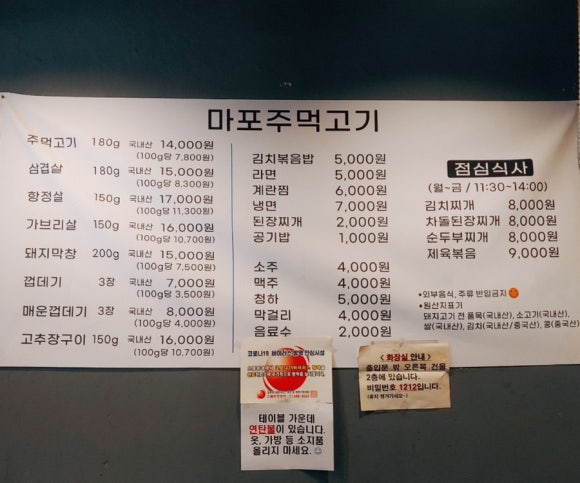 마포주먹고기
주먹고기 180g 국내산 14,000원
(100g당 7,800원)
삼겹살 180g 국내산 15,000원
(100g당 8,300원)
항정살 150g 국내산 17,000원
(100g당 11,300원)
가브리살 150g 국내산 16,000원
(100g당 10,700원)
돼지막창 200g 국내산 15,000원
(100g당 7,500원)
껍데기 3장 국내산 7,000원
(100g당 3,500원)
매운껍데기 3장 국내산 8,000원
(100g당 4,000원)
고추장구이 150g 국내산 16,000원
(100g당 10,700원)
김치볶음밥 5,000원
라면 5,000원
계란찜 6,000원
냉면 7,000원
된장찌개 2,000원
공기밥 1,000원
소주 4,000원
맥주 4,000원
청하 5,000원
막걸리 4,000원
음료수 2,000원
점심식사
(월~금 / 11:30~14:00)
김치찌개 8,000원
차돌된장찌개 8,000원
순두부찌개 8,000원
제육볶음 9,000원
•외부음식, 주류 반입금지
•원산지표기
돼지고기 전 품목(국내산), 소고기(국내산),
쌀(국내산), 김치(국내산/중국산), 콩(중국산)
코로나19 바이러스 방역 안심시설
테이블 가운데
연탄불이 있습니다.
옷, 가방 등 소지품
올리지 마세요.
< 화장실 안내 >
출입문 밖 오른쪽 건물
2층에 있습니다.
비밀번호 1212입니다.
(휴지 챙겨가세요~)